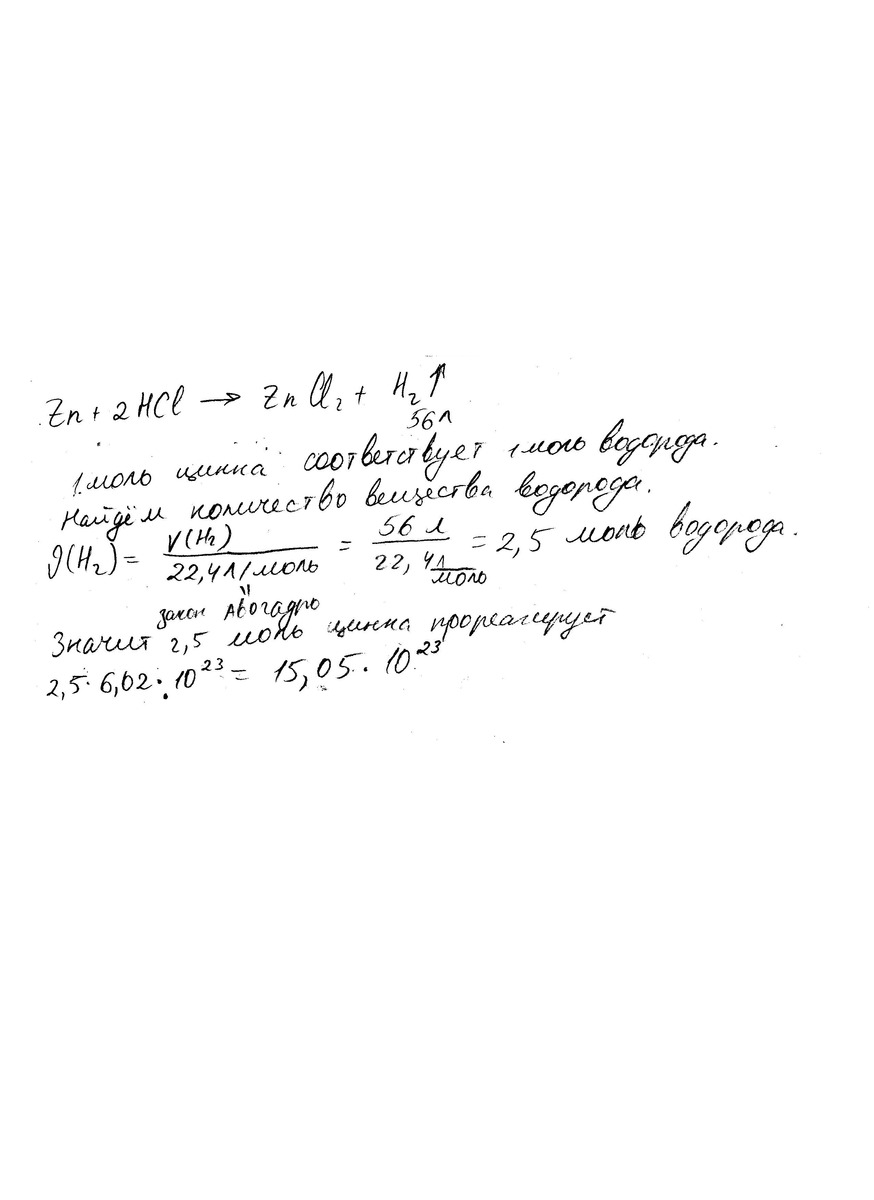 Zn + 2HCl → ZnCl₂ + H₂↑
56 л
1 моль цинка соответствует 1 моль водорода.
Найдём количество вещества водорода.
ν(H₂) = V(H₂) / 22,4 л/моль = 56 л / 22,4 л/моль = 2,5 моль водорода.
закон Авогадро
Значит 2,5 моль цинка прореагирует
2,5 · 6,02 · 10²³ = 15,05 · 10²³